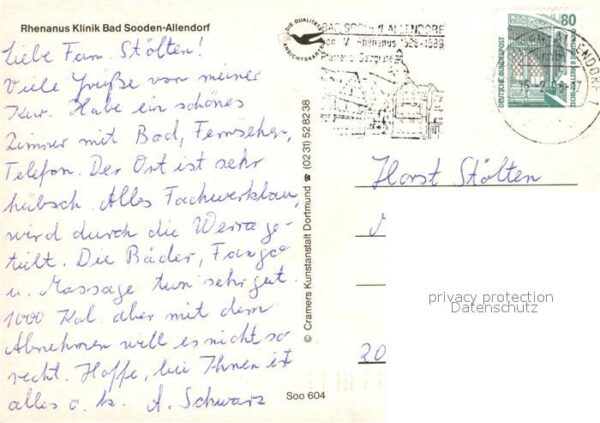 Rhenanus Klinik Bad Sooden-Allendorf
Liebe Fam. Stölten!
Viele Grüße von meiner
Kur. Habe ein schönes
Zimmer mit Bad, Fernseher,
Telefon. Der Ort ist sehr
hübsch. Alles Fachwerkbau,
wird durch die Werra ge-
teilt. Die Bäder, Fango
u. Massage tun sehr gut.
1000 Kal. aber mit dem
Abnehmen will es nicht so
recht. Hoffe, bei Ihnen ist
alles o. k. A. Schwarz
Soo 604
© Cramers Kunstanstalt Dortmund ☎ (0231) 528238
DIE QUALITÄTS
ANSICHTSKARTE
BAD SOODEN-ALLENDORF
Rhenanus
80
DEUTSCHE BUNDESPOST
Horst Stölten
privacy protection
Datenschutz
20